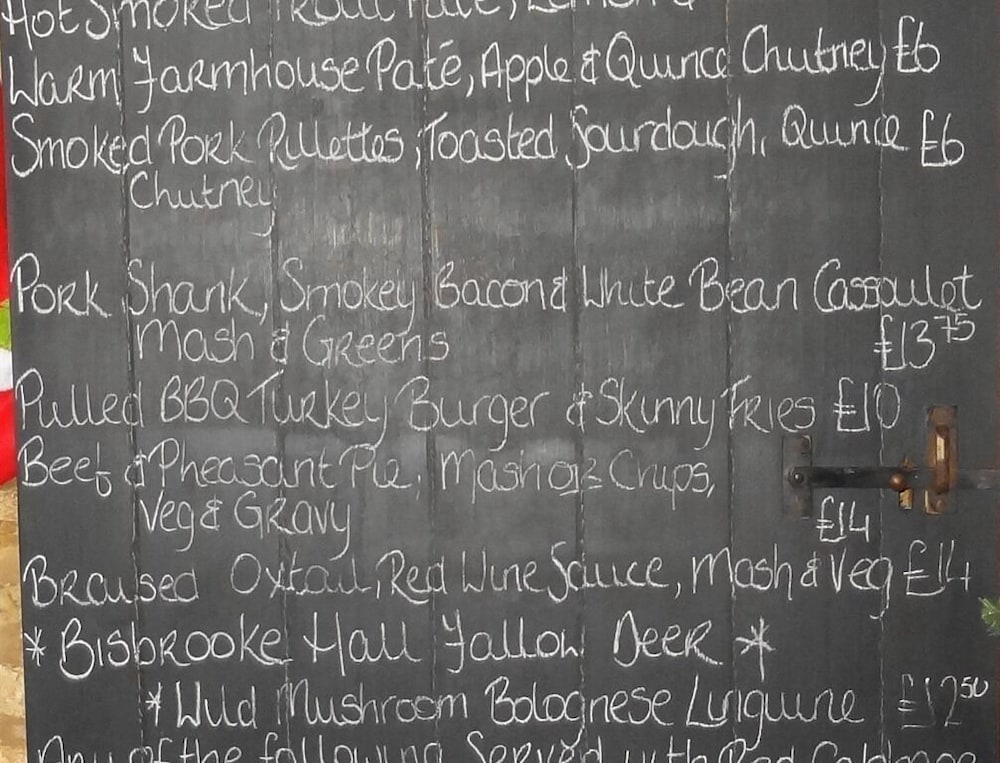 Hot Smoked Trout Pate, Lemon &
Warm Farmhouse Paté, Apple & Quince Chutney £6
Smoked Pork Rillettes, Toasted Sourdough, Quince £6
Chutney
Pork Shank, Smokey Bacon & White Bean Cassoulet
Mash & Greens £13 75
Pulled BBQ Turkey Burger & Skinny Fries £10
Beef & Pheasant Pie, Mash or Chips,
Veg & Gravy £14
Braised Oxtail, Red Wine Sauce, Mash & Veg £14
* Bisbrooke Hall Fallow Deer *
* Wild Mushroom Bolognese Linguine £12 50
Any of the following Served with Red Cabbage